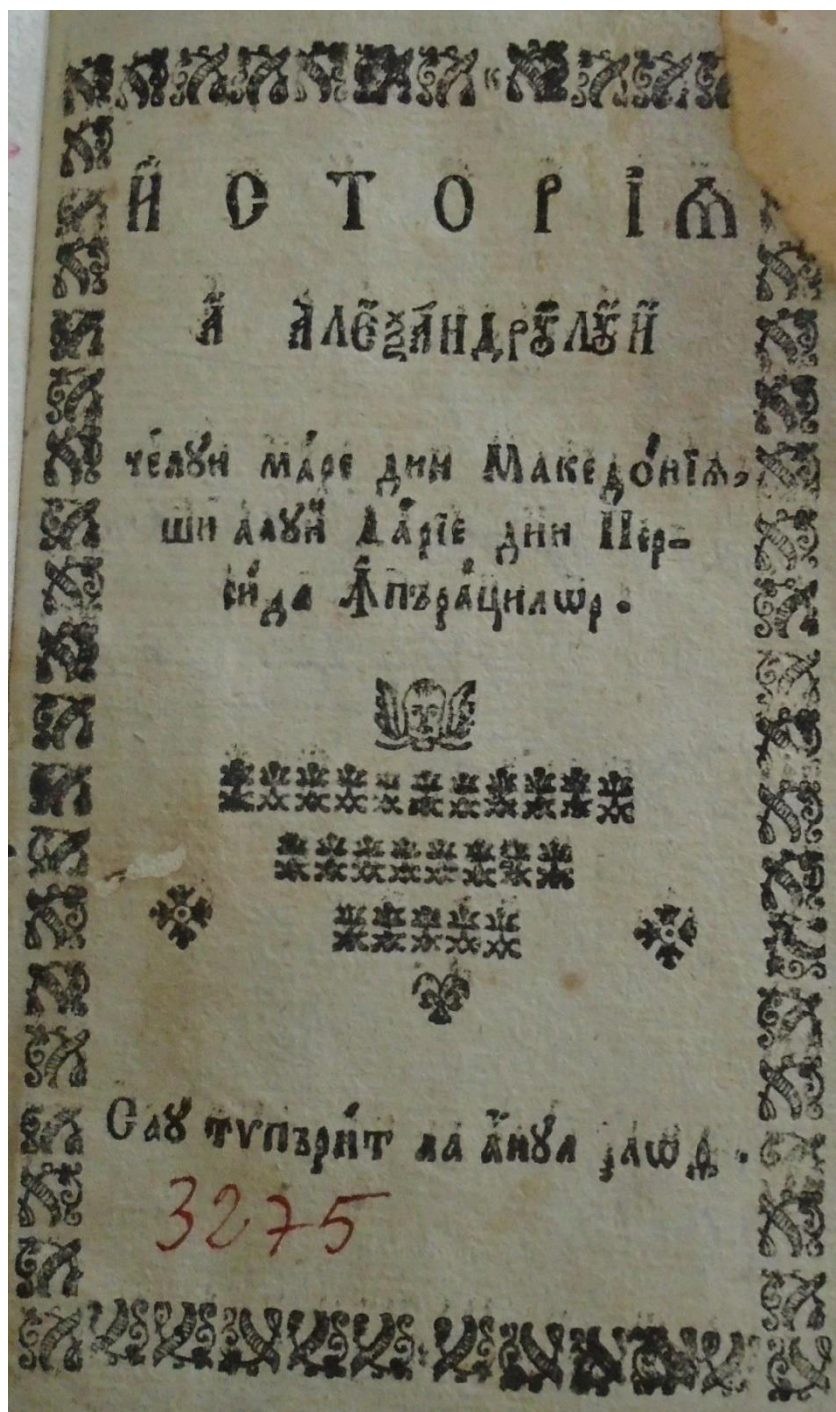 И С Т О Р І Ѧ
А҆ А҆ЛЕѮА́НДРꙊЛꙊЙ
че́лꙋй ма́ре дин Македо́нїѧ,
ши алꙋй Да́рїе дин Пер-
си́да Ꙟ҆пъра́цилѡр.
Саꙋ тѵпъри́т ла а҆нꙋл ҂зл҃ѡд.
3275